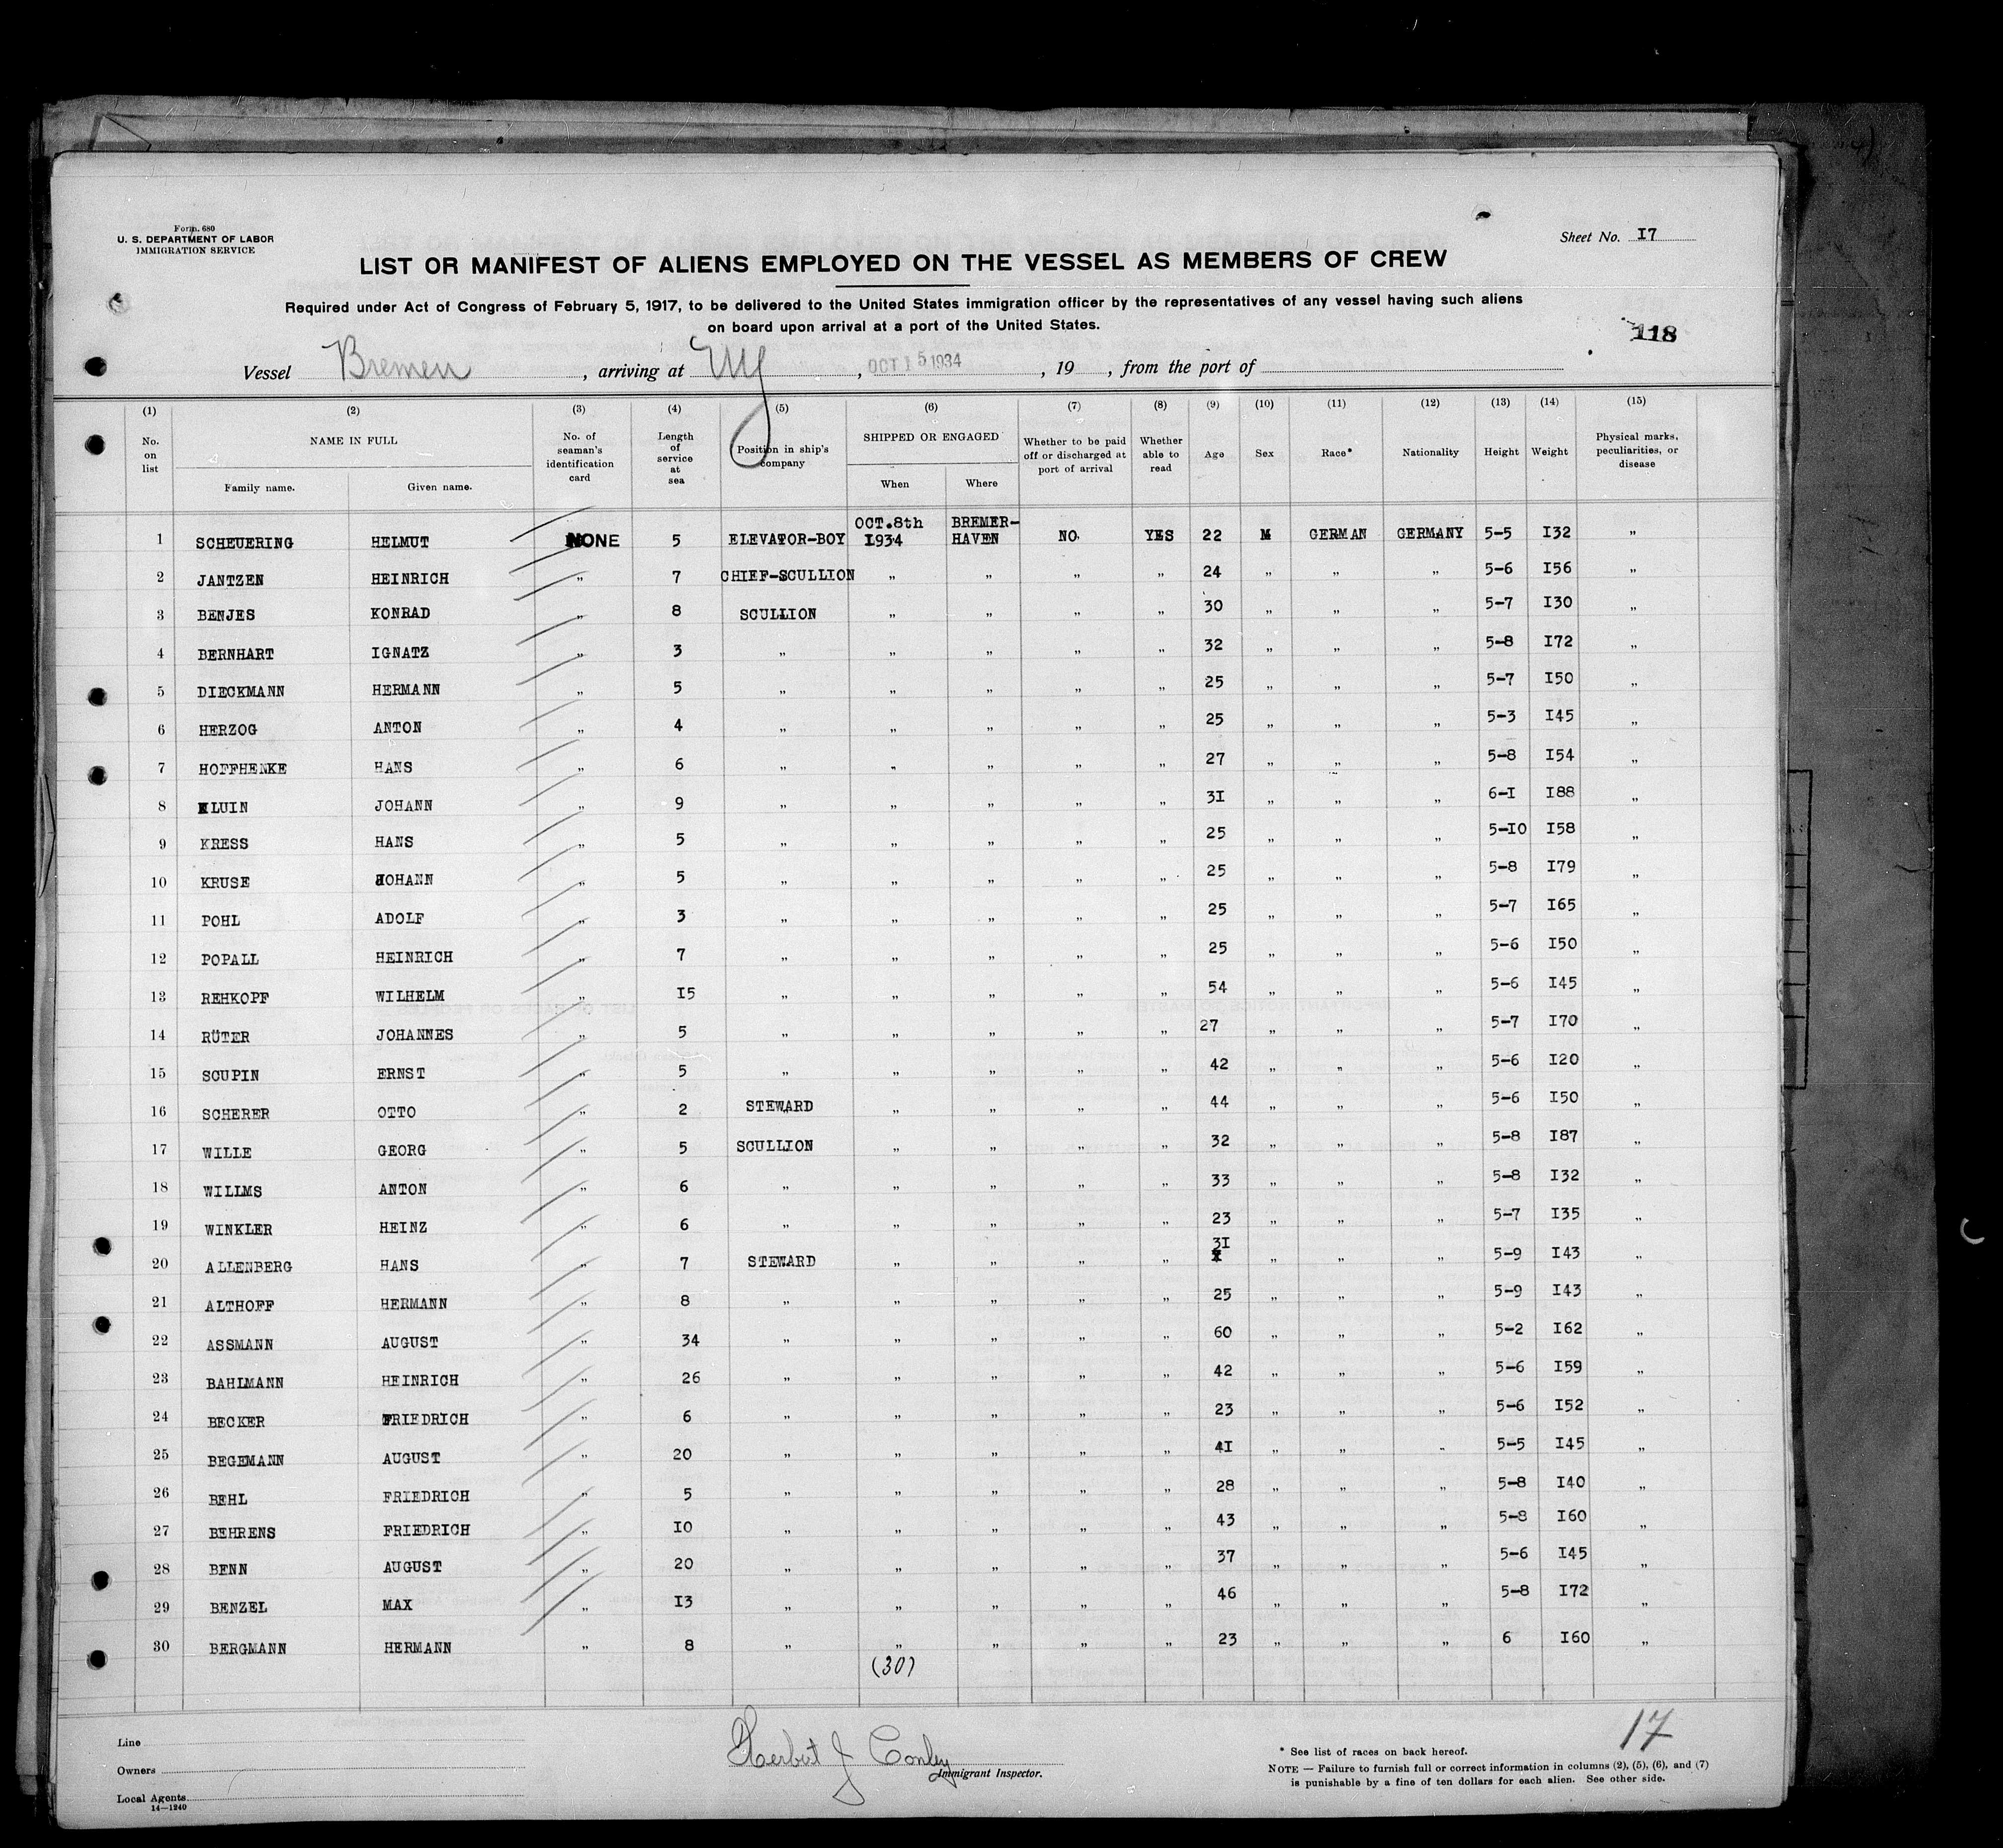 Form 680
U. S. DEPARTMENT OF LABOR
IMMIGRATION SERVICE
Sheet No. I7
LIST OR MANIFEST OF ALIENS EMPLOYED ON THE VESSEL AS MEMBERS OF CREW
Required under Act of Congress of February 5, 1917, to be delivered to the United States immigration officer by the representatives of any vessel having such aliens
on board upon arrival at a port of the United States.
118
Vessel Bremen, arriving at NY, OCT 15 1934, 19 , from the port of
(1) (2) (3) (4) (5) (6) (7) (8) (9) (10) (11) (12) (13) (14) (15)
No. on list NAME IN FULL Family name. Given name. No. of seaman's identification card Length of service at sea Position in ship's company SHIPPED OR ENGAGED When Where Whether to be paid off or discharged at port of arrival Whether able to read Age Sex Race* Nationality Height Weight Physical marks, peculiarities, or disease
1 SCHEUERING HELMUT NONE 5 ELEVATOR-BOY OCT.8th I934 BREMER-HAVEN NO. YES 22 M GERMAN GERMANY 5-5 I32 "
2 JANTZEN HEINRICH " 7 CHIEF-SCULLION " " " " 24 " " " 5-6 I56 "
3 BENJES KONRAD " 8 SCULLION " " " " 30 " " " 5-7 I30 "
4 BERNHART IGNATZ " 3 " " " " " 32 " " " 5-8 I72 "
5 DIECKMANN HERMANN " 5 " " " " " 25 " " " 5-7 I50 "
6 HERZOG ANTON " 4 " " " " " 25 " " " 5-3 I45 "
7 HOFFHENKE HANS " 6 " " " " " 27 " " " 5-8 I54 "
8 KLUIN JOHANN " 9 " " " " " 3I " " " 6-I I88 "
9 KRESS HANS " 5 " " " " " 25 " " " 5-I0 I58 "
10 KRUSE JOHANN " 5 " " " " " 25 " " " 5-8 I79 "
11 POHL ADOLF " 3 " " " " " 25 " " " 5-7 I65 "
12 POPALL HEINRICH " 7 " " " " " 25 " " " 5-6 I50 "
13 REHKOPF WILHELM " I5 " " " " " 54 " " " 5-6 I45 "
14 RÜTER JOHANNES " 5 " " " " " 27 " " " 5-7 I70 "
15 SCUPIN ERNST " 5 " " " " " 42 " " " 5-6 I20 "
16 SCHERER OTTO " 2 STEWARD " " " " 44 " " " 5-6 I50 "
17 WILLE GEORG " 5 SCULLION " " " " 32 " " " 5-8 I87 "
18 WILLMS ANTON " 6 " " " " " 33 " " " 5-8 I32 "
19 WINKLER HEINZ " 6 " " " " " 23 " " " 5-7 I35 "
20 ALLENBERG HANS " 7 STEWARD " " " " 3I " " " 5-9 I43 "
21 ALTHOFF HERMANN " 8 " " " " " 25 " " " 5-9 I43 "
22 ASSMANN AUGUST " 34 " " " " " 60 " " " 5-2 I62 "
23 BAHLMANN HEINRICH " 26 " " " " " 42 " " " 5-6 I59 "
24 BECKER FRIEDRICH " 6 " " " " " 23 " " " 5-6 I52 "
25 BEGEMANN AUGUST " 20 " " " " " 4I " " " 5-5 I45 "
26 BEHL FRIEDRICH " 5 " " " " " 28 " " " 5-8 I40 "
27 BEHRENS FRIEDRICH " I0 " " " " " 43 " " " 5-8 I60 "
28 BENN AUGUST " 20 " " " " " 37 " " " 5-6 I45 "
29 BENZEL MAX " I3 " " " " " 46 " " " 5-8 I72 "
30 BERGMANN HERMANN " 8 " " " " " 23 " " " 6 I60 "
(30)
17
Line
Owners
Local Agents
14—1240
Herbert J Conley
Immigrant Inspector.
* See list of races on back hereof.
NOTE — Failure to furnish full or correct information in columns (2), (5), (6), and (7)
is punishable by a fine of ten dollars for each alien. See other side.